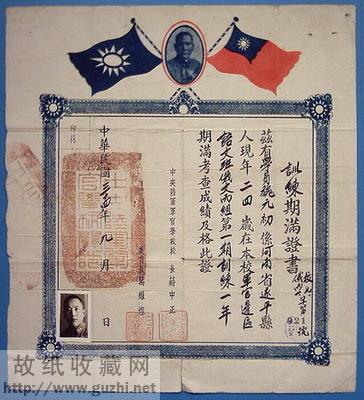 訓練期滿證書
茲有學員魏九初係河南省遂平縣
人現年二四歲在本校軍官邊區
語文班俄文丙組第一期訓練一年
期滿考查成績及格此證
中央陸軍軍官學校校長蔣中正
萬耀煌
中華民國三五年九月 日
印花
故纸收藏网
http://www.guzhi.net